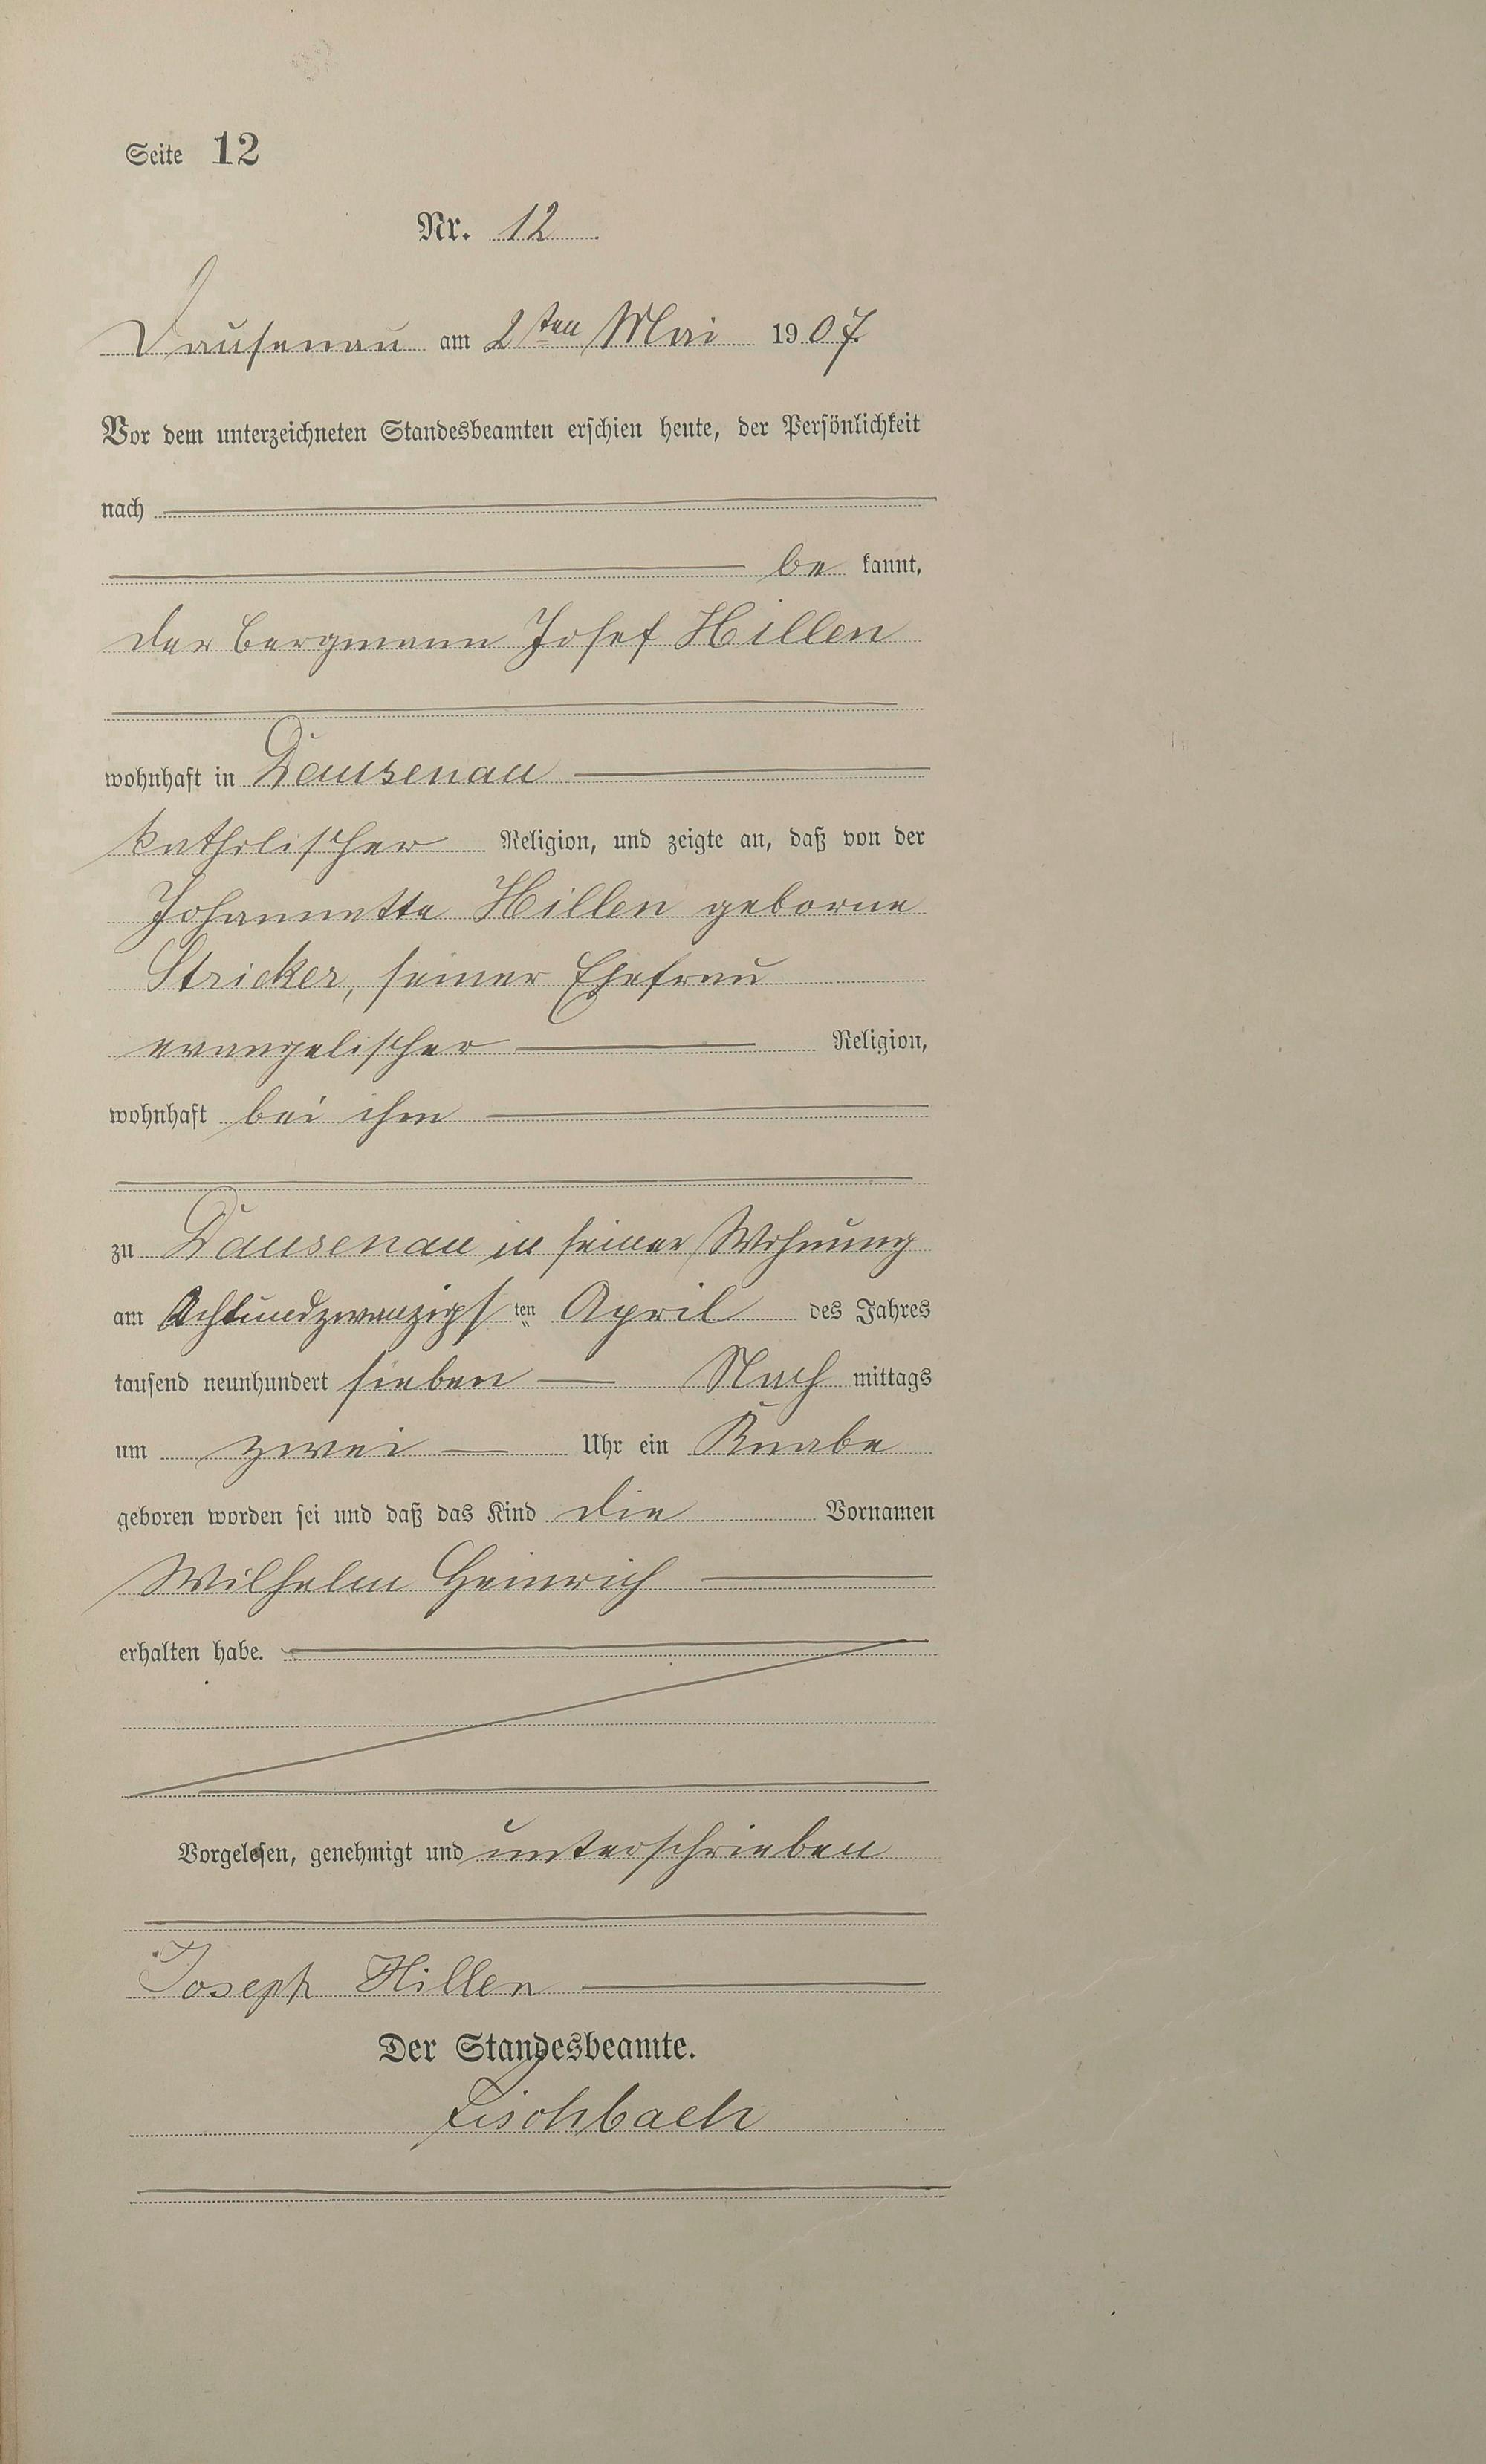 Seite 12
Nr. 12
Dausenau am 2ten Mai 1907.
Vor dem unterzeichneten Standesbeamten erschien heute, der Persönlichkeit
nach
be kannt,
der Bergmann Josef Hillen
wohnhaft in Dausenau
katholischer Religion, und zeigte an, daß von der
Johannette Hillen geborne
Stricker, seiner Ehefrau
evangelischer Religion,
wohnhaft bei ihm
zu Dausenau in seiner Wohnung
am Achtundzwanzigsten April des Jahres
tausend neunhundert sieben Nach mittags
um zwei Uhr ein Knabe
geboren worden sei und daß das Kind die Vornamen
Wilhelm Heinrich
erhalten habe.
Vorgelesen, genehmigt und unterschrieben
Joseph Hillen
Der Standesbeamte.
Fischbach